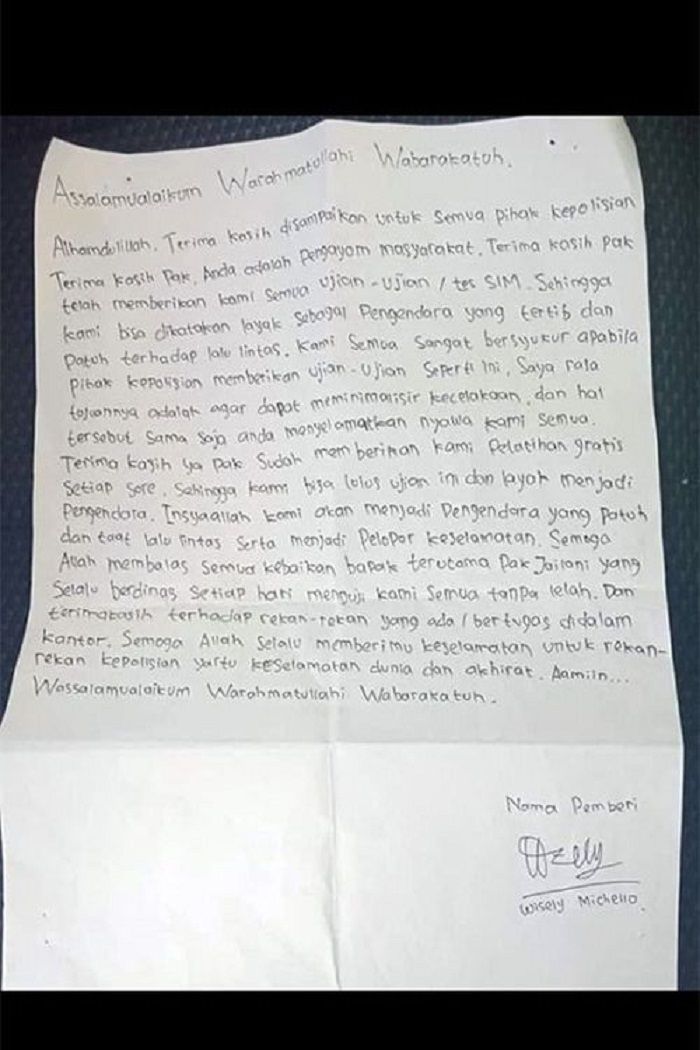 Assalamualaikum Warahmatullahi Wabarakatuh.
Alhamdulillah. Terima kasih disampaikan untuk semua pihak kepolisian
Terima kasih Pak, Anda adalah Pengayom masyarakat. Terima kasih Pak
telah memberikan kami semua ujian-ujian / tes SIM. Sehingga
kami bisa dikatakan layak sebagai Pengendara yang tertib dan
Patuh terhadap lalu lintas. Kami semua sangat bersyukur apabila
Pihak kepolisian memberikan ujian-ujian seperti ini, Saya rasa
tujuannya adalah agar dapat meminimalisir kecelakaan, dan hal
tersebut sama saja anda menyelamatkan nyawa kami semua.
Terima kasih ya pak sudah memberikan kami Pelatihan gratis
setiap sore. Sehingga kami bisa lolos ujian ini dan layak menjadi
Pengendara. Insyaallah kami akan menjadi Pengendara yang patuh
dan taat lalu lintas serta menjadi Pelopor keselamatan. Semoga
Allah membalas semua kebaikan bapak terutama Pak Jailani yang
Selalu berdinas setiap hari menguji kami semua tanpa lelah. Dan
terimakasih terhadap rekan-rekan yang ada / bertugas didalam
kantor. Semoga Allah selalu memberimu keselamatan untuk rekan-
rekan kepolisian yaitu keselamatan dunia dan akhirat. Aamiin...
Wassalamualaikum Warahmatullahi Wabarakatuh.
Nama Pemberi
Wisely Michello.